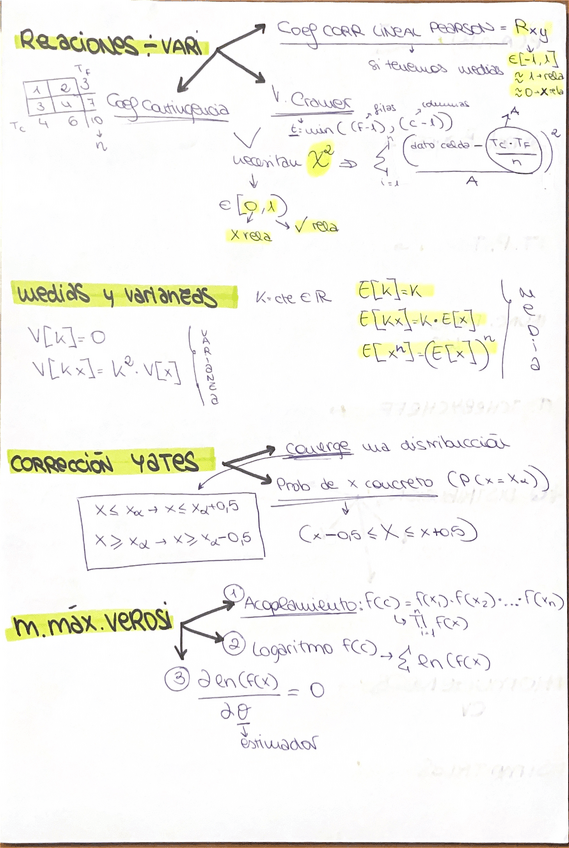 Relaciones ÷ VARI
Coef CORR LINEAL PEARSON = Rxy
si tenemos medias
∈[-1,1]
≈ 1 → rela
≈ 0 → x rela
TF
1 2 3
3 4 7
TC 4 6 10
n
Coef Contingencia
V. Cramer
filas columnas
t: min ((f-1), (c-1))
necesitan χ² ⇒ Σ i=1 n (dato celda - TC·TF/n)²
A
A
∈ [0,1)
x rela ✓ rela
medias y varianzas
K = cte ∈ ℝ
E[K]=K
E[Kx]=K·E[x]
E[xⁿ]=(E[x])ⁿ
MEDIA
V[K]=0
V[Kx]=K²·V[x]
VARIANZA
CORRECCIÓN YATES
converge una distribucción
Prob de x concreto (P(x=xα))
x ≤ xα → x ≤ xα+0,5
x ≥ xα → x ≥ xα-0,5
(x-0,5 ≤ X ≤ x+0,5)
m.máx.verosi
① Acoplamiento: f(c) = f(x₁)·f(x₂)·...·f(xn)
↳ ∏ i=1 n f(x)
② Logaritmo f(c) → Σ ln(f(x)
③ ∂ ln(f(x) / ∂θ = 0
estimador